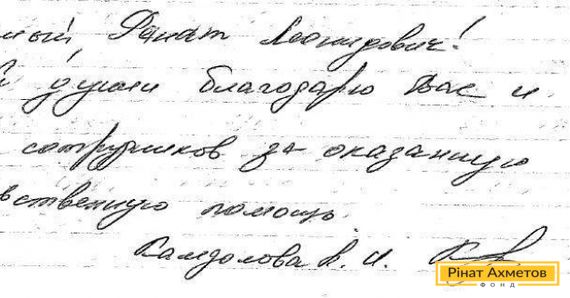 мый Ринат Леонидович!
й души благодарю Вас и
сотрудников за оказанную
вственную помощь.
К. И.
Рінат Ахметов
ФОНД